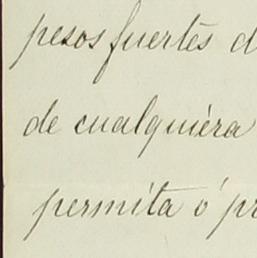 pesos fuertes d
de cualquiera
permita ó pr